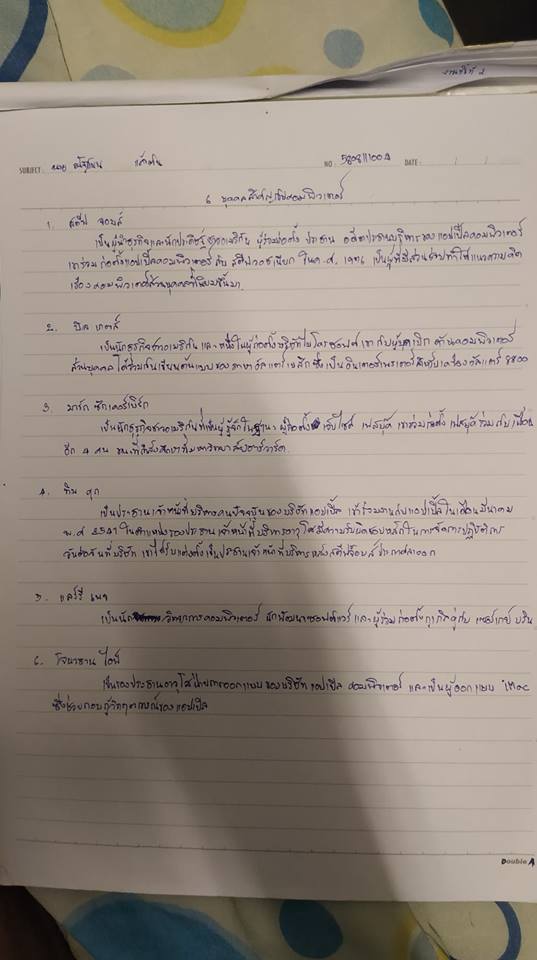 งานชิ้นที่ 2
SUBJECT: นาย NO: 5808111004 DATE: / /
6 บุคคลสำคัญในคอมพิวเตอร์
1. สตีฟ จอบส์
เป็นผู้นำธุรกิจและนักประดิษฐ์ชาวอเมริกัน ผู้ร่วมก่อตั้ง ประธาน อดีตประธานบริหารของแอปเปิ้ลคอมพิวเตอร์
เขาร่วมก่อตั้งแอปเปิ้ลคอมพิวเตอร์กับ สตีฟวอซเนียก ในค.ศ. 1976 เป็นผู้ที่มีส่วนช่วยทำให้แนวความคิด
เรื่องคอมพิวเตอร์ส่วนบุคคลที่นิยมขึ้นมา
2. บิล เกตส์
เป็นนักธุรกิจชาวอเมริกัน และหนึ่งในผู้ก่อตั้งบริษัทไมโครซอฟต์ เขากับผู้บุกเบิก ด้านคอมพิวเตอร์
ส่วนบุคคล ได้ร่วมกันเขียนต้นแบบของภาษาอัลแตร์เบสิก ซึ่งเป็นอินเตอร์พรีเตอร์สำหรับเครื่องอัลแตร์ 8800
3. มาร์ก ซักเคอร์เบิร์ก
เป็นนักธุรกิจชาวอเมริกันที่เป็นผู้รู้จักในฐานะ ผู้ก่อตั้งเว็บไซต์ เฟสบุ๊ค เขาร่วมก่อตั้ง เฟสบุ๊คร่วมกับเพื่อน
อีก 4 คน ขณะที่กำลังศึกษาที่มหาวิทยาลัยฮาร์วาร์ด
4. ทิม คุก
เป็นประธานเจ้าหน้าที่บริหารคนปัจจุบันของบริษัทแอปเปิ้ล เข้าร่วมงานกับแอปเปิ้ลในเดือนมีนาคม
พ.ศ 2541 ในตำแหน่งรองประธานเจ้าหน้าที่บริหารอาวุโส มีความรับผิดชอบหลักในการจัดการปฏิบัติการ
วันต่อวันที่บริษัท เขาได้รับแต่งตั้งเป็นประธานเจ้าหน้าที่บริหารหลังสตีฟจ็อบส์ประกาศลาออก
5. แลร์รี่ เพจ
เป็นนักวิทยาการคอมพิวเตอร์ นักพัฒนาซอฟต์แวร์ และผู้ร่วมก่อตั้งกูเกิลคู่กับ เซอร์เกย์ บริน
6. โจนาธาน ไอฟ์
เป็นรองประธานอาวุโสฝ่ายการออกแบบของบริษัทแอปเปิล คอมพิวเตอร์ และเป็นผู้ออกแบบ iMac
ซึ่งช่วยกอบกู้วิกฤตการณ์ของแอปเปิล
Double A